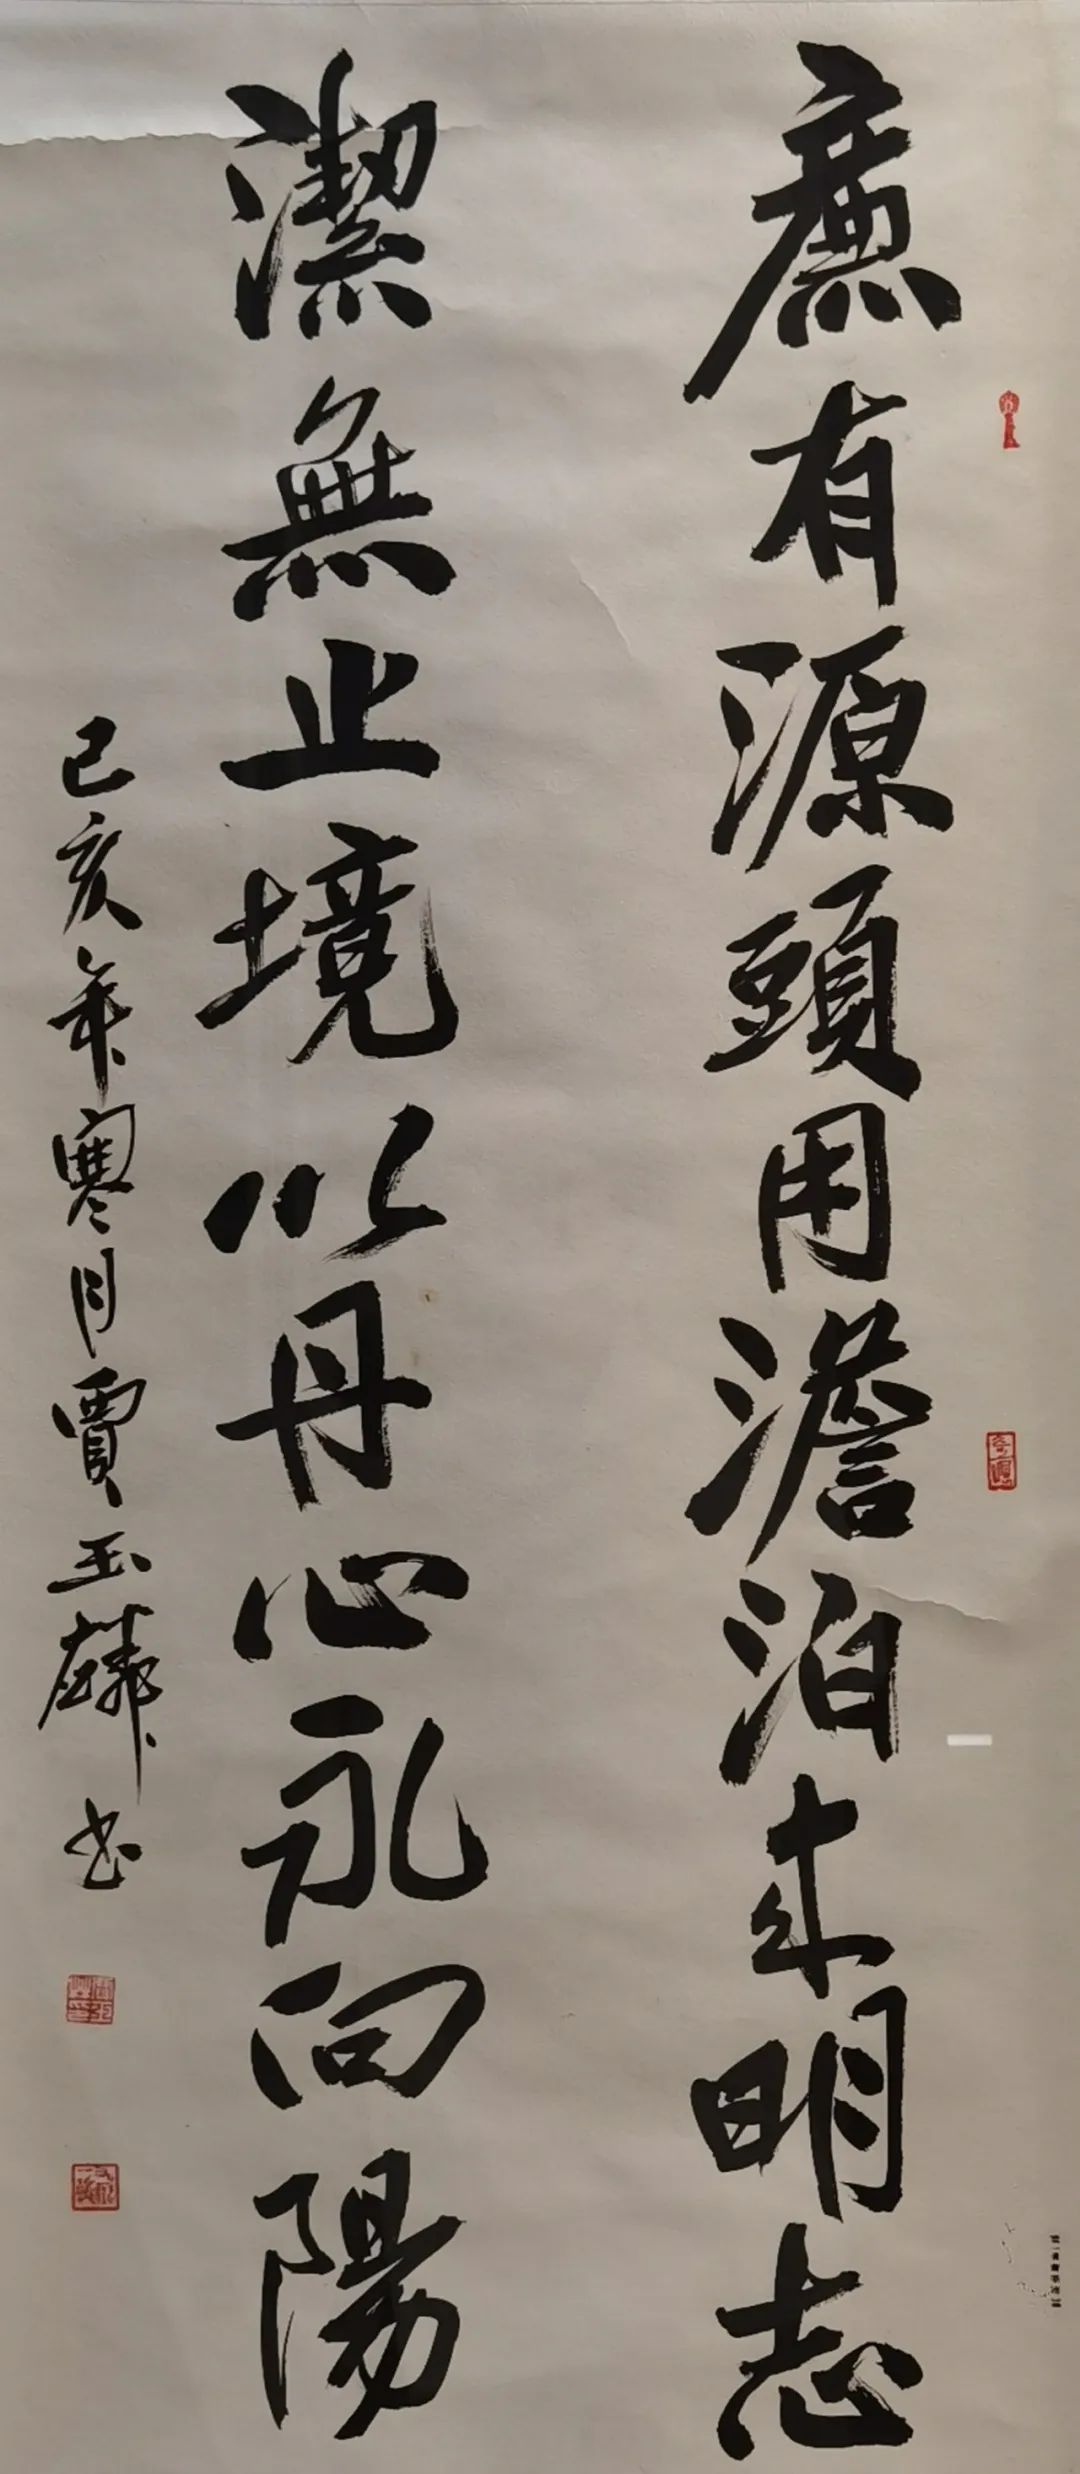 廉有源頭用澹泊来明志
潔無止境以丹心永向陽
己亥年寒月賈玉麟书